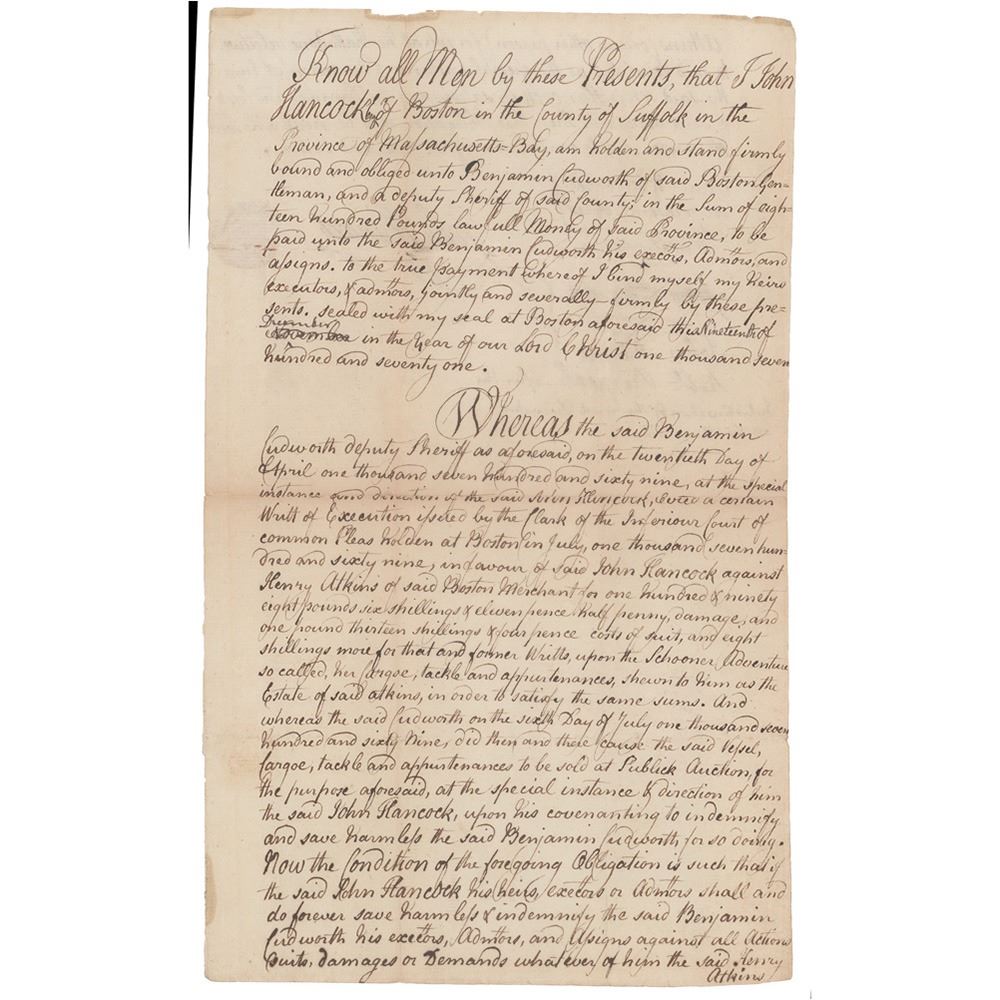 Know all Men by these Presents, that I John
Hancock Esqr of Boston in the County of Suffolk in the
Province of Massachusetts=Bay, am holden and stand firmly
bound and obliged unto Benjamin Cudworth of said Boston Gen=
tleman, and a deputy Sheriff of said County; in the Sum of eigh=
teen hundred Pounds lawfull Money of said Province, to be
paid unto the said Benjamin Cudworth his exectors, Admtors, and
assigns. to the true Payment whereof I bind myself my Heirs
executors, & admtors, jointly and severally firmly by these pre=
sents. sealed with my seal at Boston aforesaid this Nineteenth of
November in the Year of our Lord Christ one thousand seven
hundred and seventy one.
Whereas the said Benjamin
Cudworth deputy Sheriff as aforesaid, on the twentieth Day of
April one thousand seven hundred and sixty nine, at the special
instance and direction of the said John Hancock, a certain
Writt of Execution issued by the Clark of the Inferiour Court of
common Pleas holden at Boston in July, one thousand seven hun=
dred and sixty nine, in favour of said John Hancock against
Henry Atkins of said Boston Merchant for one hundred & ninety
eight pounds six shillings & eleven pence half penny, damage, and
one pound thirteen shillings & four pence costs of suit, and eight
shillings more for that and former Writts, upon the Schooner Adventure
so called, her Cargoe, tackle and appurtenances, shewn to him as the
Estate of said atkins, in order to satisfy the same sums. And
whereas the said Cudworth on the sixth Day of July one thousand seven
hundred and sixty Nine, did then and there cause the said Vessel,
Cargoe, tackle and appurtenances to be sold at Publick Auction, for
the purpose aforesaid, at the special instance & direction of him
the said John Hancock, upon his covenanting to indemnify
and save harmless the said Benjamin Cudworth for so doing.
Now the Condition of the foregoing Obligation is such that if
the said John Hancock his heirs, exectors or Admtors shall and
do forever save harmless & indemnify the said Benjamin
Cudworth his exectors, Admtors, and Assigns against all Actions
Suits, damages or Demands whatever of him the said Henry
Atkins